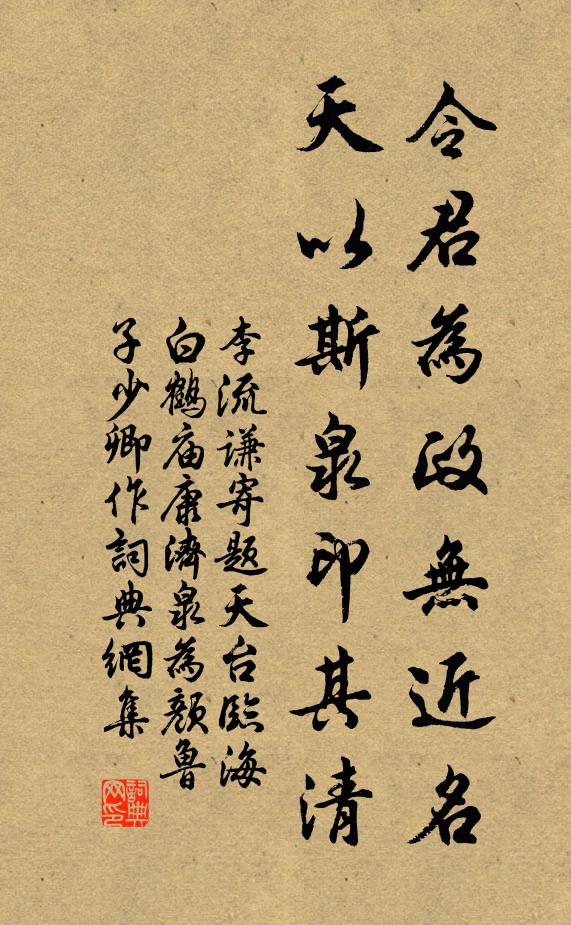 令君為政無近名
天以斯泉印其清
李流謙寄題天台臨海
白鶴庙康濟泉為顏魯
子少卿作詞典網集
詞典
网印